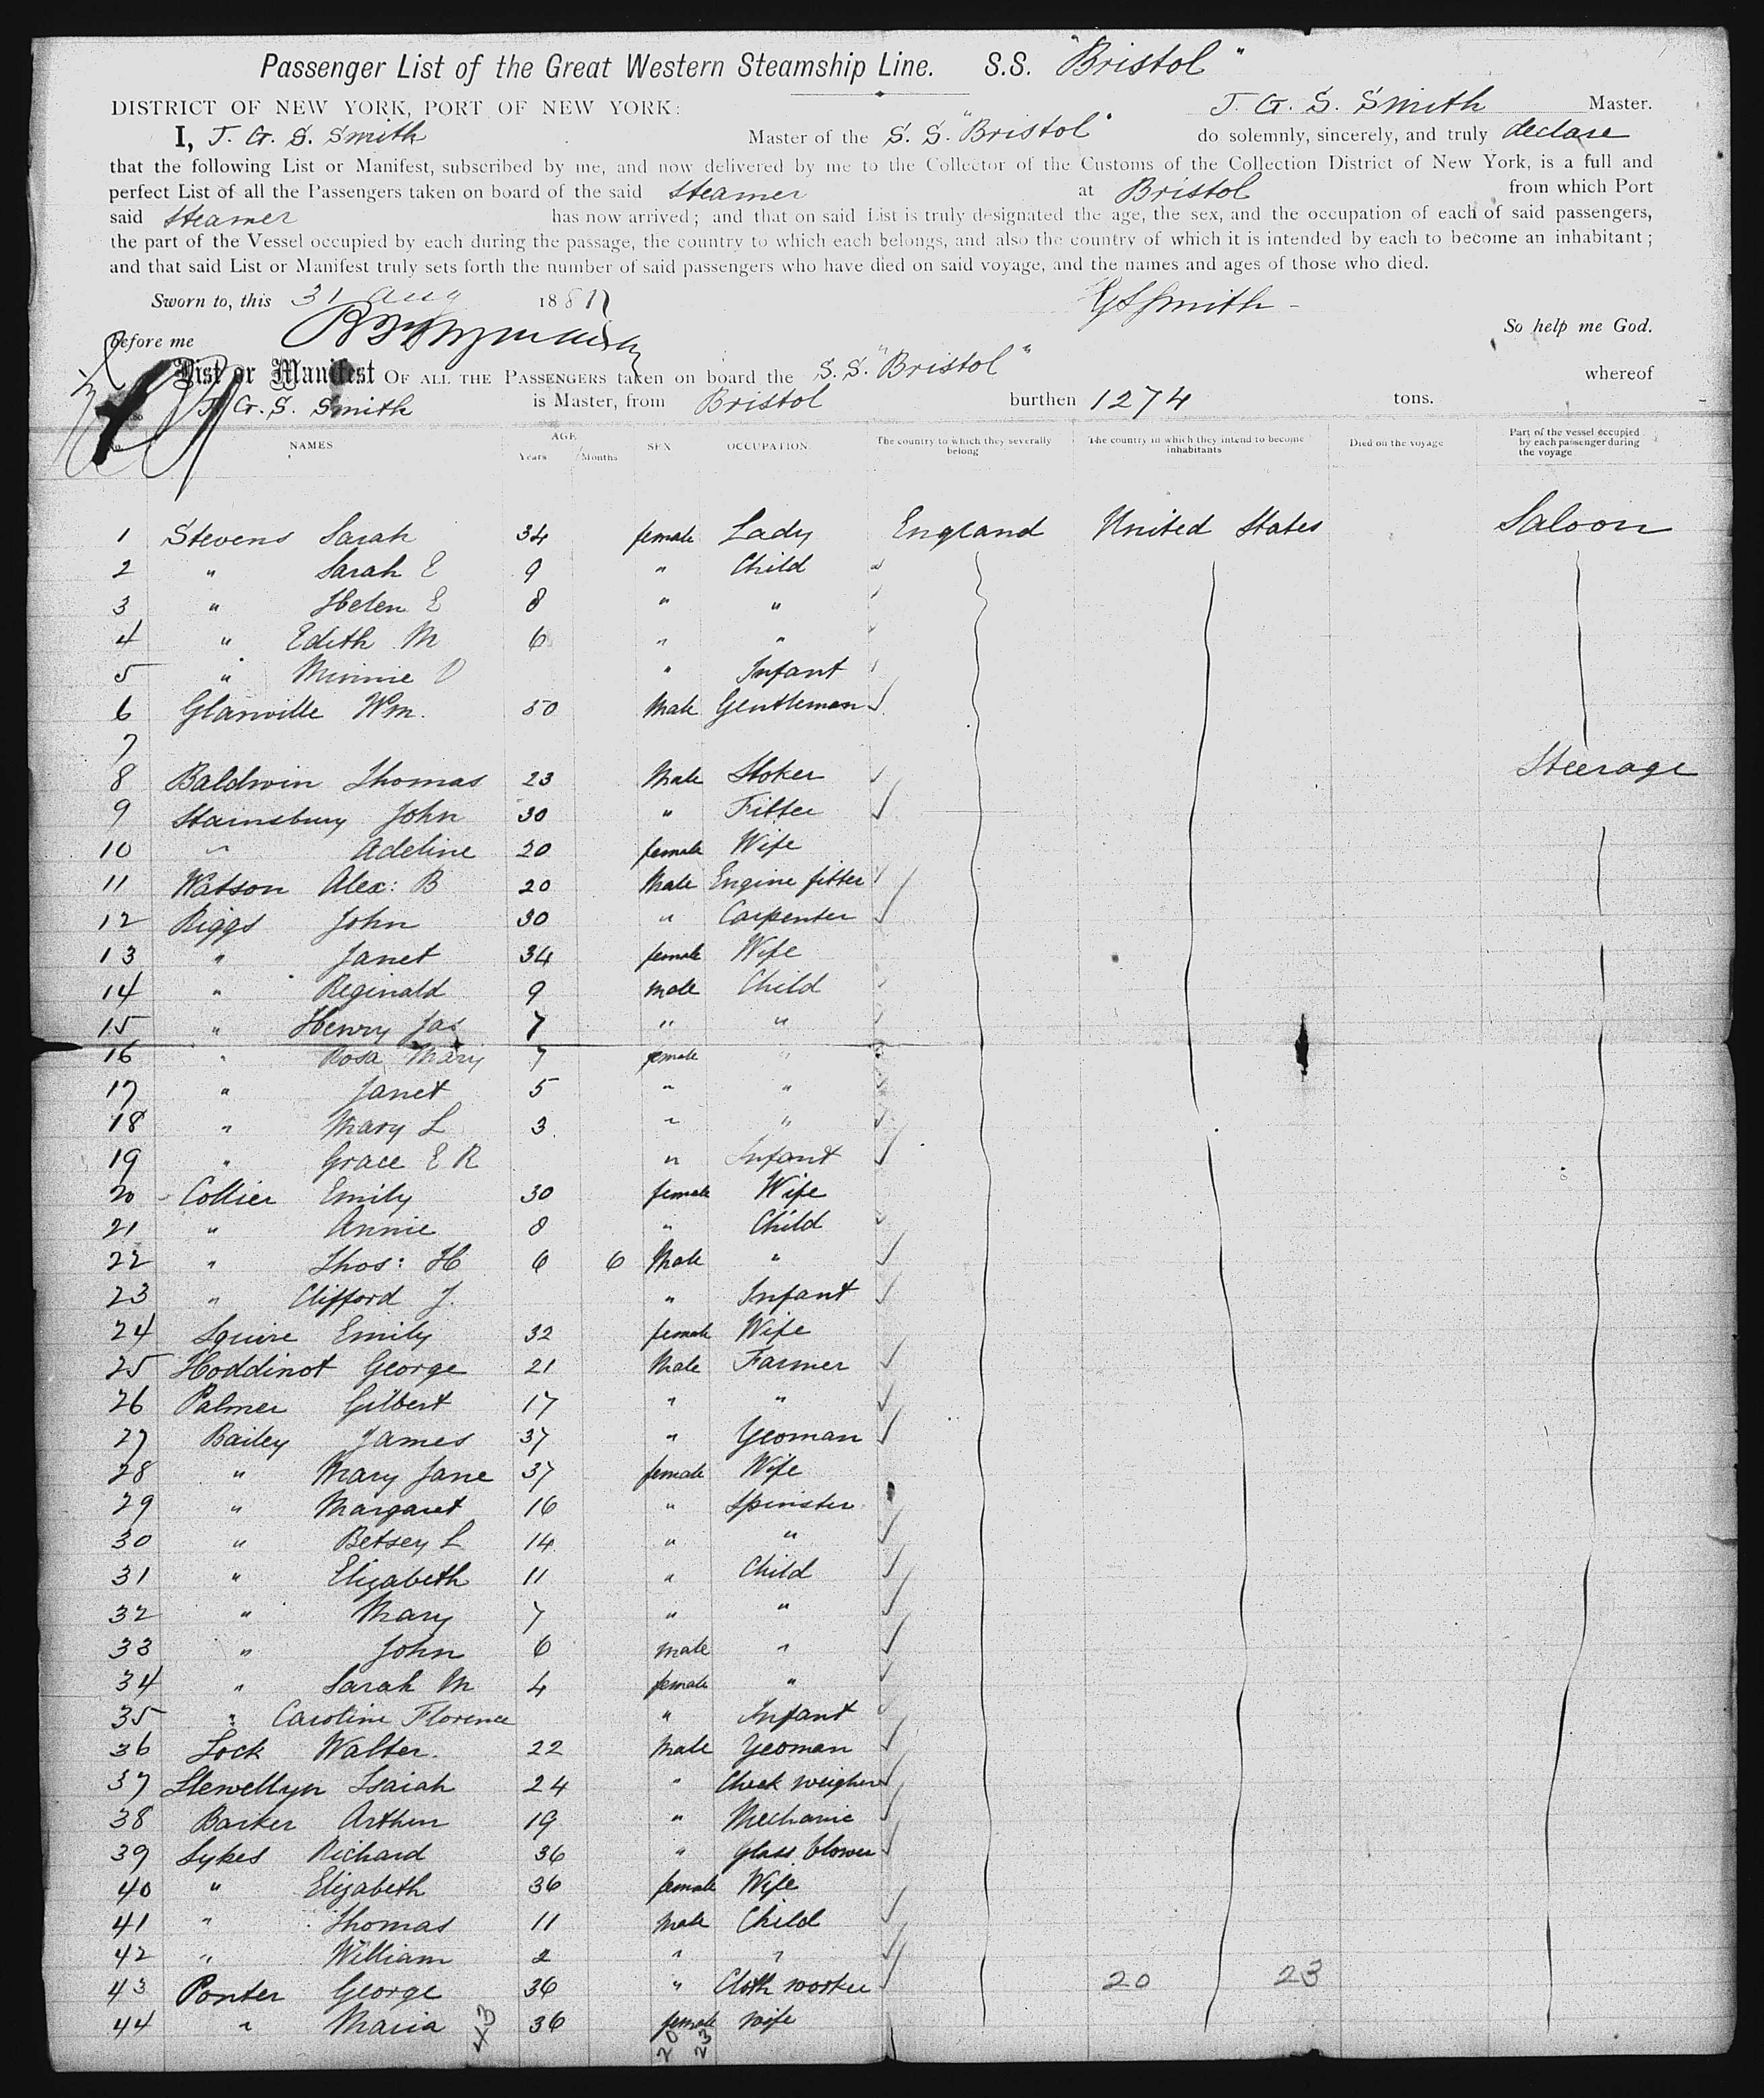 Passenger List of the Great Western Steamship Line. S.S. "Bristol"
DISTRICT OF NEW YORK, PORT OF NEW YORK: J. G. S. Smith Master.
I, J. G. S. Smith Master of the S. S. "Bristol" do solemnly, sincerely, and truly declare
that the following List or Manifest, subscribed by me, and now delivered by me to the Collector of the Customs of the Collection District of New York, is a full and
perfect List of all the Passengers taken on board of the said steamer at Bristol from which Port
said steamer has now arrived; and that on said List is truly designated the age, the sex, and the occupation of each of said passengers,
the part of the Vessel occupied by each during the passage, the country to which each belongs, and also the country of which it is intended by each to become an inhabitant;
and that said List or Manifest truly sets forth the number of said passengers who have died on said voyage, and the names and ages of those who died.
Sworn to, this 31 Aug 188 Smith
Before me So help me God.
List or Manifest OF ALL THE PASSENGERS taken on board the S.S. "Bristol" whereof
J. G. S. Smith is Master, from Bristol burthen 1274 tons.
No. NAMES AGE Years Months SEX OCCUPATION. The country to which they severally belong The country in which they intend to become inhabitants Died on the voyage Part of the vessel occupied by each passenger during the voyage
1 Stevens Sarah 34 female Lady England United States Saloon
2 " Sarah E 9 " Child "
3 " Helen E 8 " "
4 " Edith M 6 " "
5 " Minnie " Infant
6 Glanville Wm. 50 Male Gentleman
7
8 Baldwin Thomas 23 Male Stoker Steerage
9 Stainsbury John 30 " Fitter
10 " Adeline 20 female Wife
11 Watson Alex: B 20 Male Engine fitter
12 Riggs John 30 " Carpenter
13 " Janet 34 female Wife
14 " Reginald 9 male Child
15 " Henry Jas 7 " "
16 " Rosa Mary 7 female "
17 " Janet 5 " "
18 " Mary L 3 " "
19 " Grace E R " Infant
20 Collier Emily 30 female Wife
21 " Annie 8 " Child
22 " Thos: H 6 6 Male "
23 " Clifford J. " Infant
24 Squire Emily 32 female Wife
25 Hoddinot George 21 Male Farmer
26 Palmer Gilbert 17 " "
27 Bailey James 37 " Yeoman
28 " Mary Jane 37 female Wife
29 " Margaret 16 " Spinster
30 " Betsey L 14 " "
31 " Elizabeth 11 " Child
32 " Mary 7 " "
33 " John 6 male "
34 " Sarah M 4 female "
35 " Caroline Florence " Infant
36 Lock Walter. 22 Male Yeoman
37 Llewellyn Isaiah 24 " Check weigher
38 Barker Arthur 19 " Mechanic
39 Sykes Richard 36 " glass blower
40 " Elizabeth 36 female Wife
41 " Thomas 11 Male Child
42 " William 2 " "
43 Ponter George 36 " Cloth worker 20 23
44 " Maria 36 female wife
43 20 23